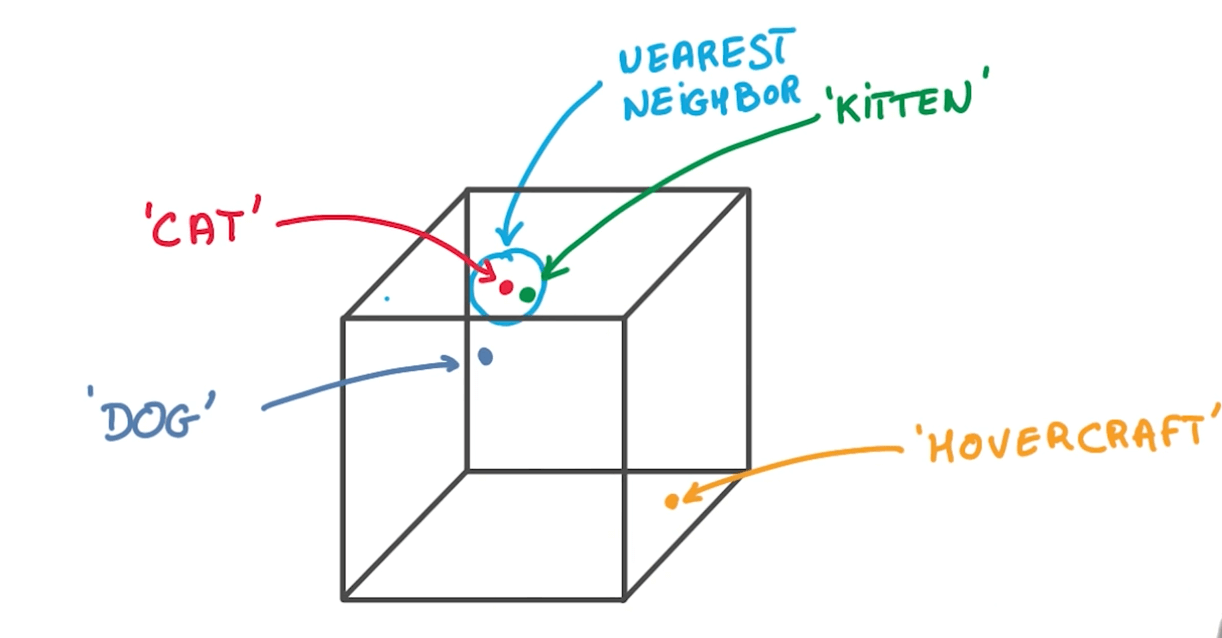 NEAREST
NEIGHBOR
'KITTEN'
'CAT'
'DOG'
'HOVERCRAFT'